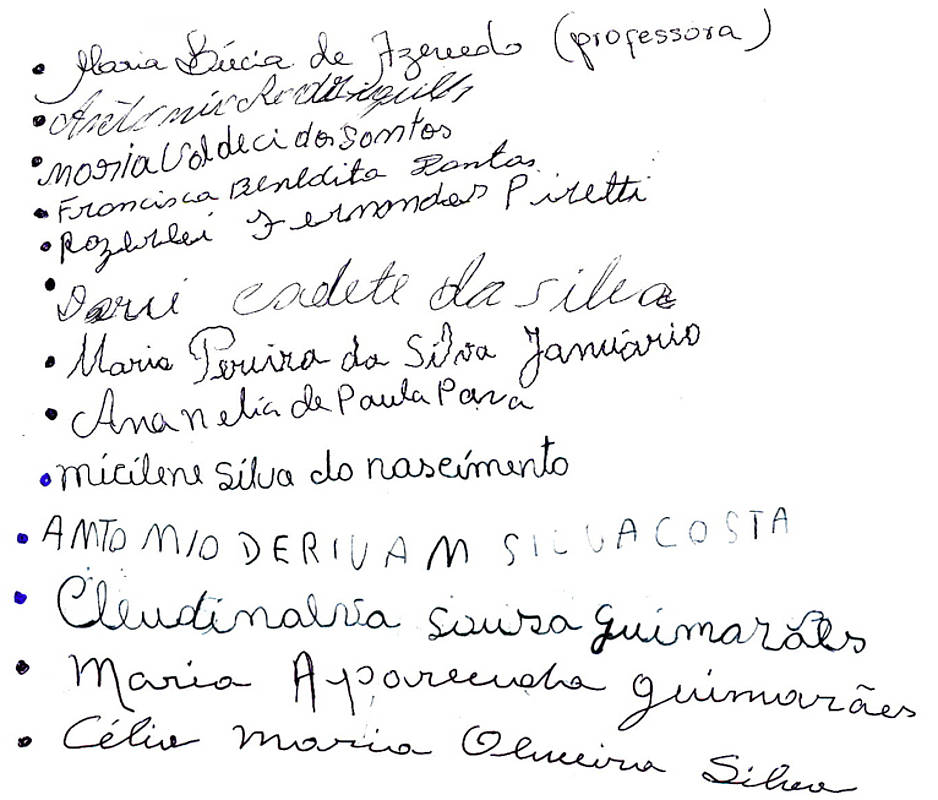 • Maria Lúcia de Azevedo (professora)
• Antonio Rodrigues
• Maria Valdeci dos Santos
• Francisca Benedita Dantas
• Rozerlei Fernandes Piretti
• Darui cadete da silva
• Maria Pereira da Silva Januário
• Ana nelia de Paula Para
• micilene silva do nascimento
• AMTOMIO DERIVAM SILVA COSTA
• Cleudinalva Souza guimarães
• Maria Aparecida guimarães
• Célia maria Oliveira Silva